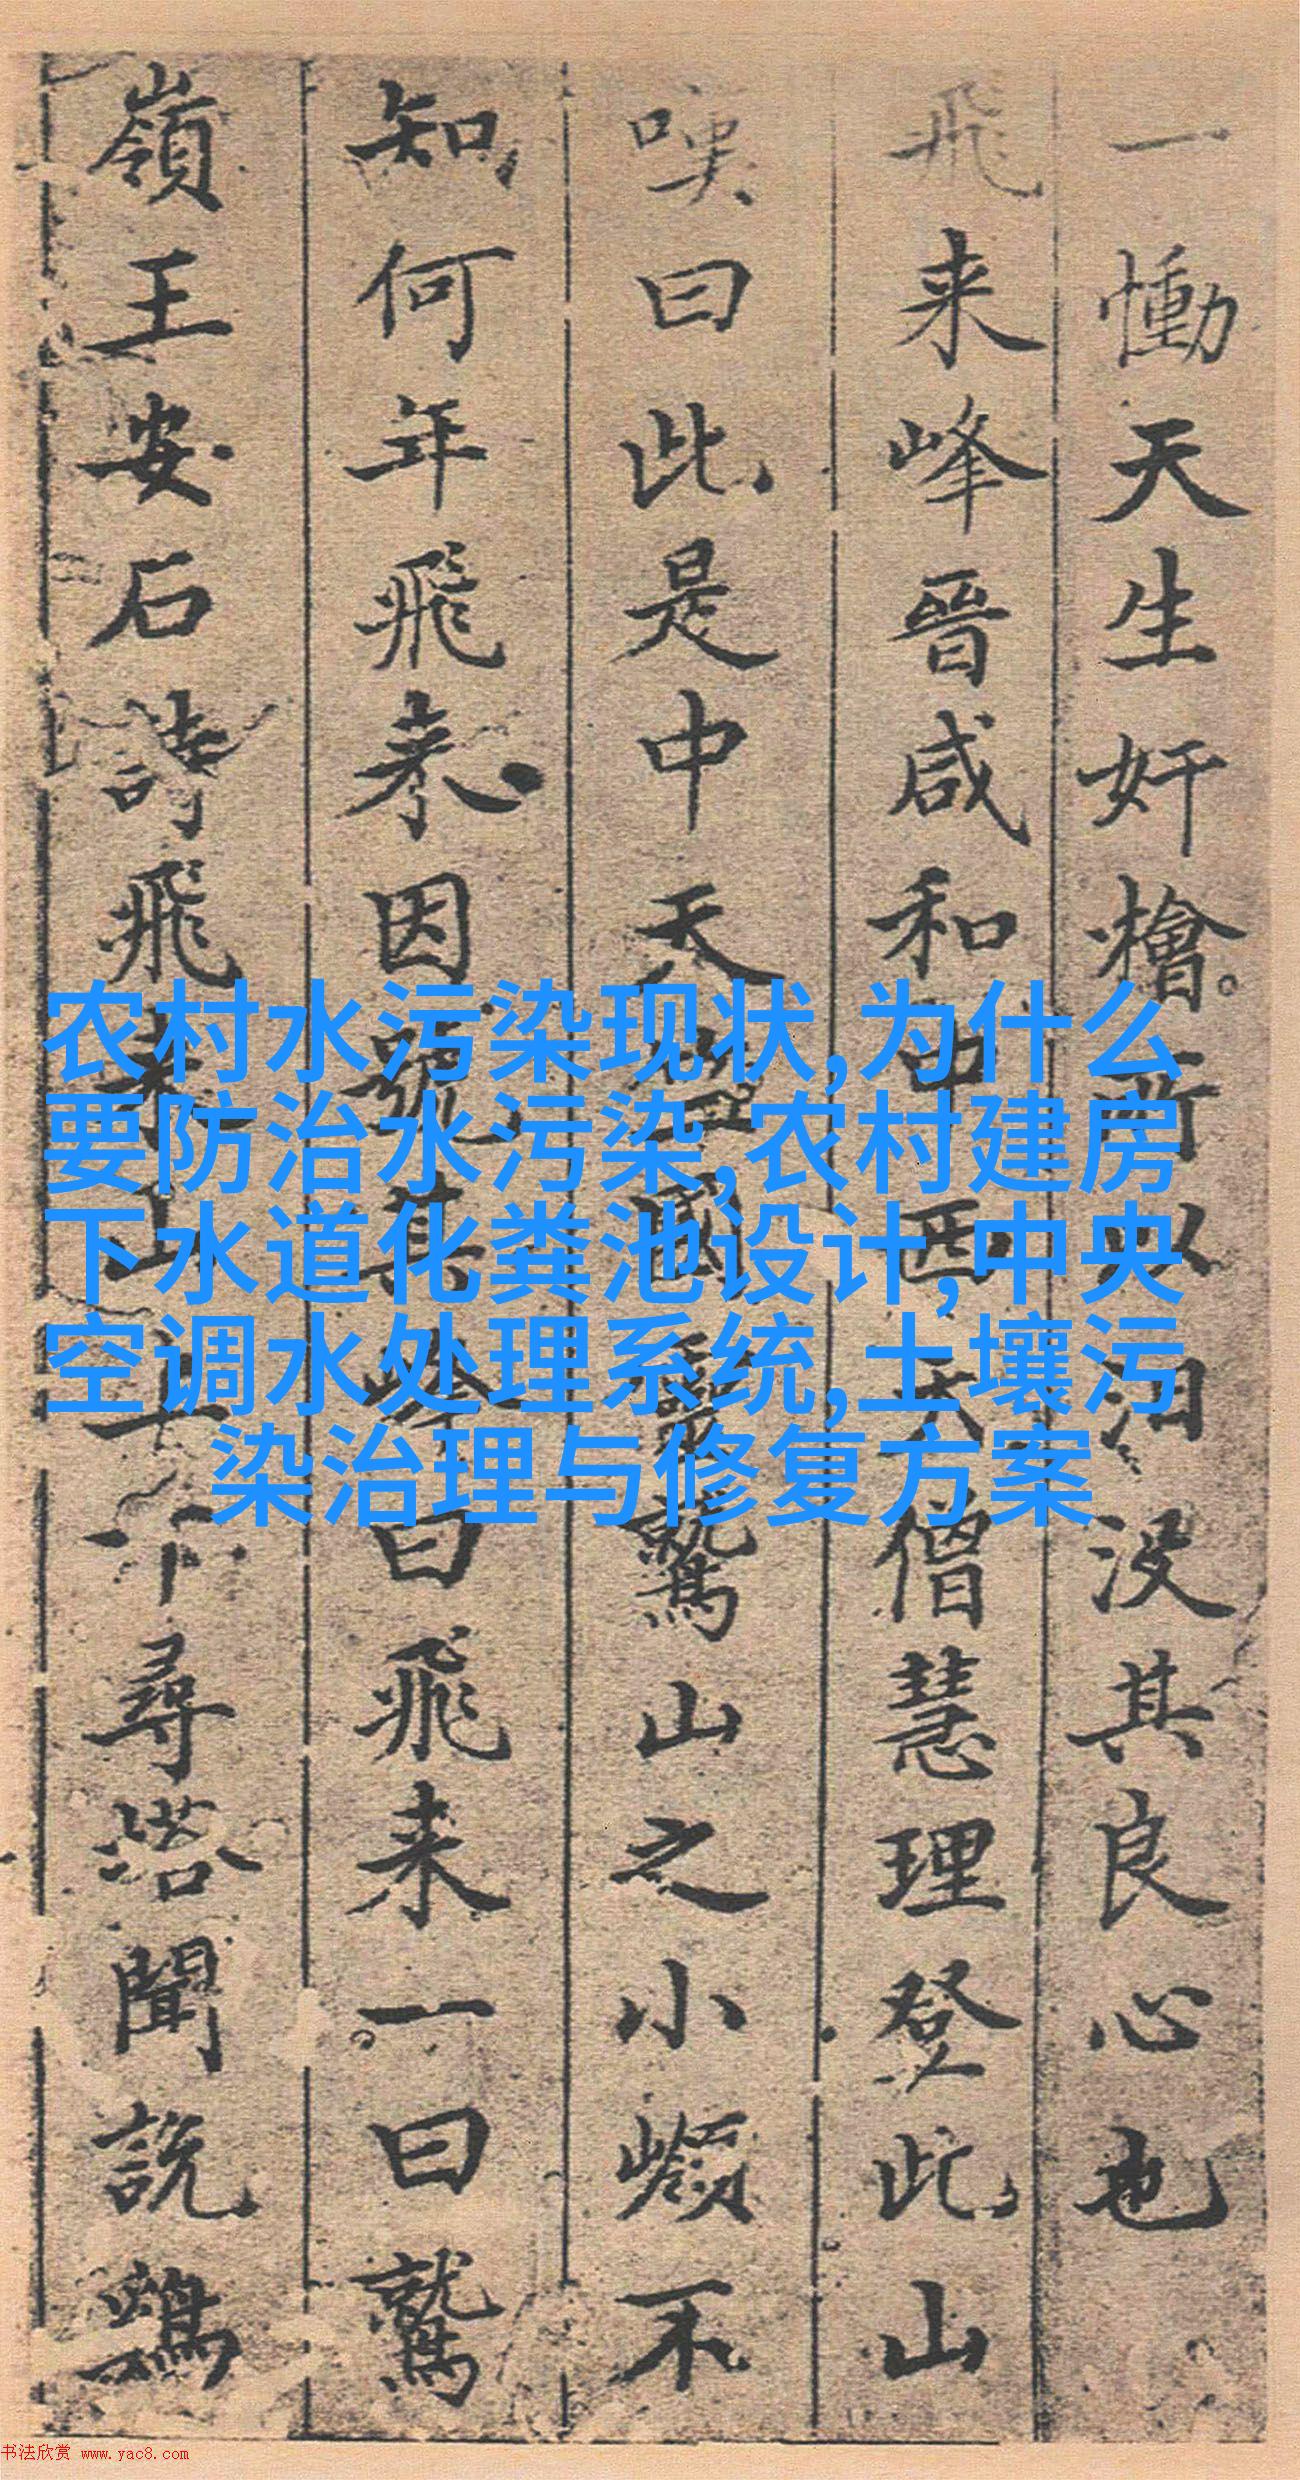 一慟天生奸檜
汨没其良心也
飛来峰晉咸和中西天僧慧理登此山
嘆曰此是中天竺國靈鷲山之小嶺不
知何年飛来因號其峰曰飛来一曰鷲
嶺王安石詩飛来山上千尋塔聞説鷄
农村水污染现状,为什么
要防治水污染,农村建房
下水道化粪池设计,中央
空调水处理系统,土壤污
染治理与修复方案
书法欣赏 www.yac8.com